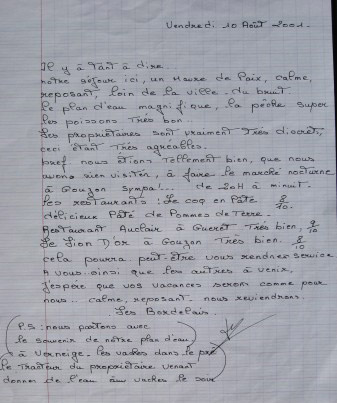 Vendredi 10 Août 2001.
Il y à Tant à dire
notre séjour ici, un Havre de Paix, calme,
reposant, loin de la ville. du bruit
le plan d'eau magnifique, la pêche super
les poissons Très bon.
Les propriétaires sont vraiment Très discrèt,
ceci étant Très agréables.
bref nous étions Tellement bien, que nous
avons rien visiter, à faire le marche nocturne
à Gouzon sympa!... de 20H à minuit.
Les restaurants: Le coq en Pâte 8/10.
délicieux Pâté de Pommes de Terre.
Restaurant Auclair à Gueret Très bien. 9/10
Le Lion D'or à Gouzon Très bien. 8/10
cela pourra peut-être vous rendre service
A vous ainsi que les autres à venir,
j'espère que vos vacances serons comme pour
nous... calme, reposant. nous reviendrons.
Les Bordelais.
P.S: nous partons avec
le souvenir de nôtre plan d'eau
à Verneige. les vaches dans le pré
le Tracteur du propriétaire venant
donner de l'eau aux vaches le soir